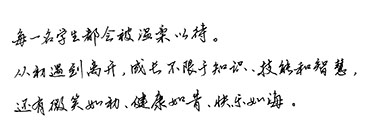 每一名学生都会被温柔以待。
从初遇到离开，成长不限于知识、技能和智慧，
还有微笑如初、健康如昔、快乐如海。